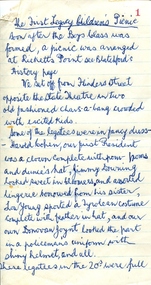 1
The First Legacy Children's Picnic
Soon after the Boys class was
formed, a picnic was arranged
at Ricketts Point see Blatefords
History page
We set off from Flinders Street
opposite the State Theatre in two
old fashioned chars-a-bang crowded
with excited kids.
Some of the Legatees were in fancy dress-
Harold Cohen, our first President
was a clown complete with pom poms
and dunce's hat, Jimmy Downing
looked sweet in bloomers and assorted
lingerie borrowed from his sister,
Lou Young sported a Tyrolean costume
complete with feather in hat, and our
own Donovan Joynt looked the part
in a policemans uniform with
shiny helmet, and all.
These legatees in the 20s were full